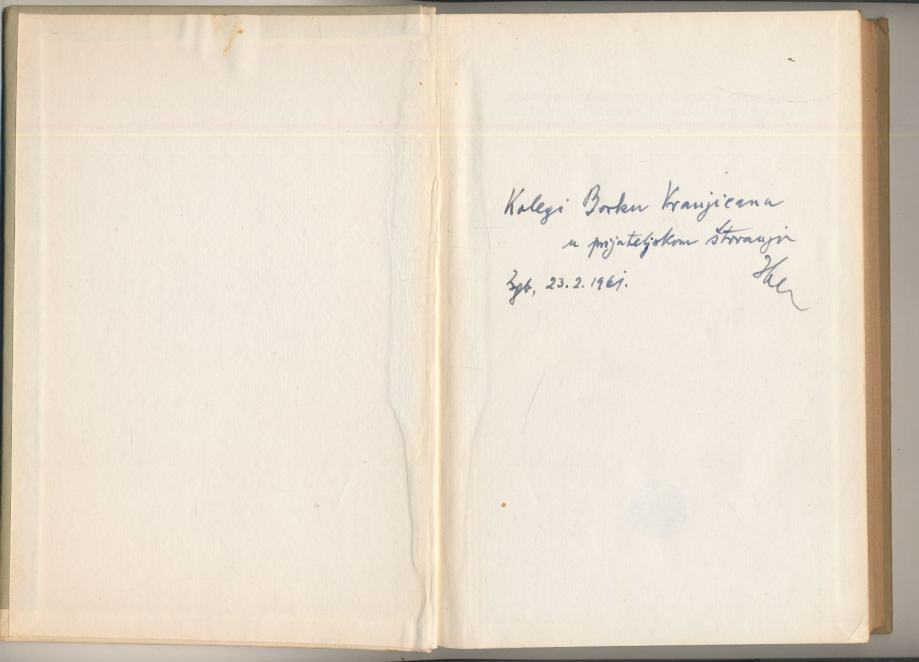 Kolegi Borku Vranjicanu
u prijateljskom štovanju
Zgb, 23.2.1961.